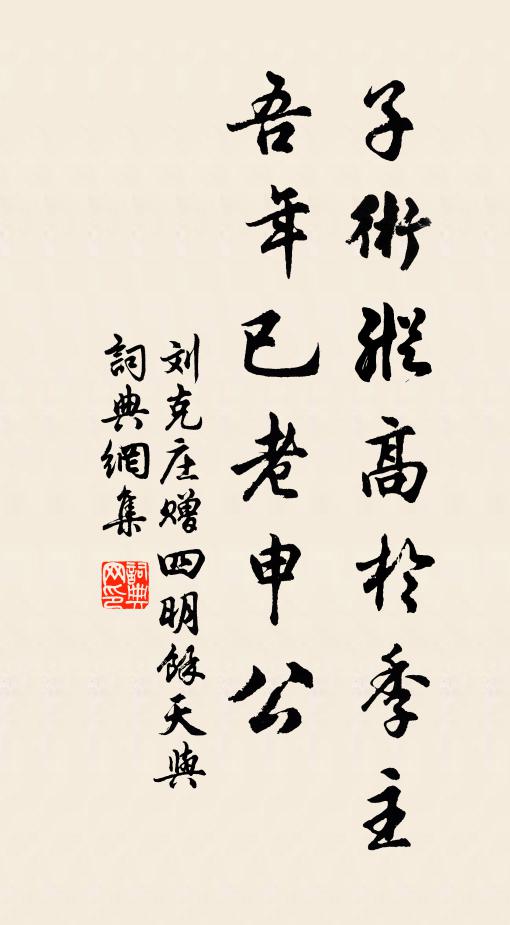 子術縱高於季主
吾年已老申公
刘克庄赠四明餘天與
詞典網集
詞典网印